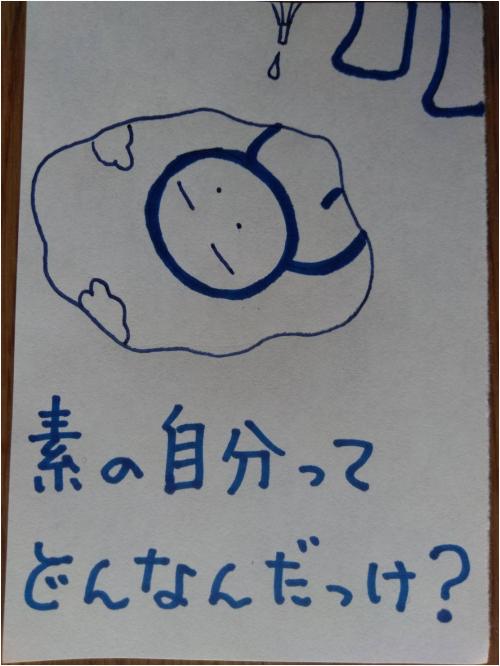 素の自分って
どんなんだっけ?